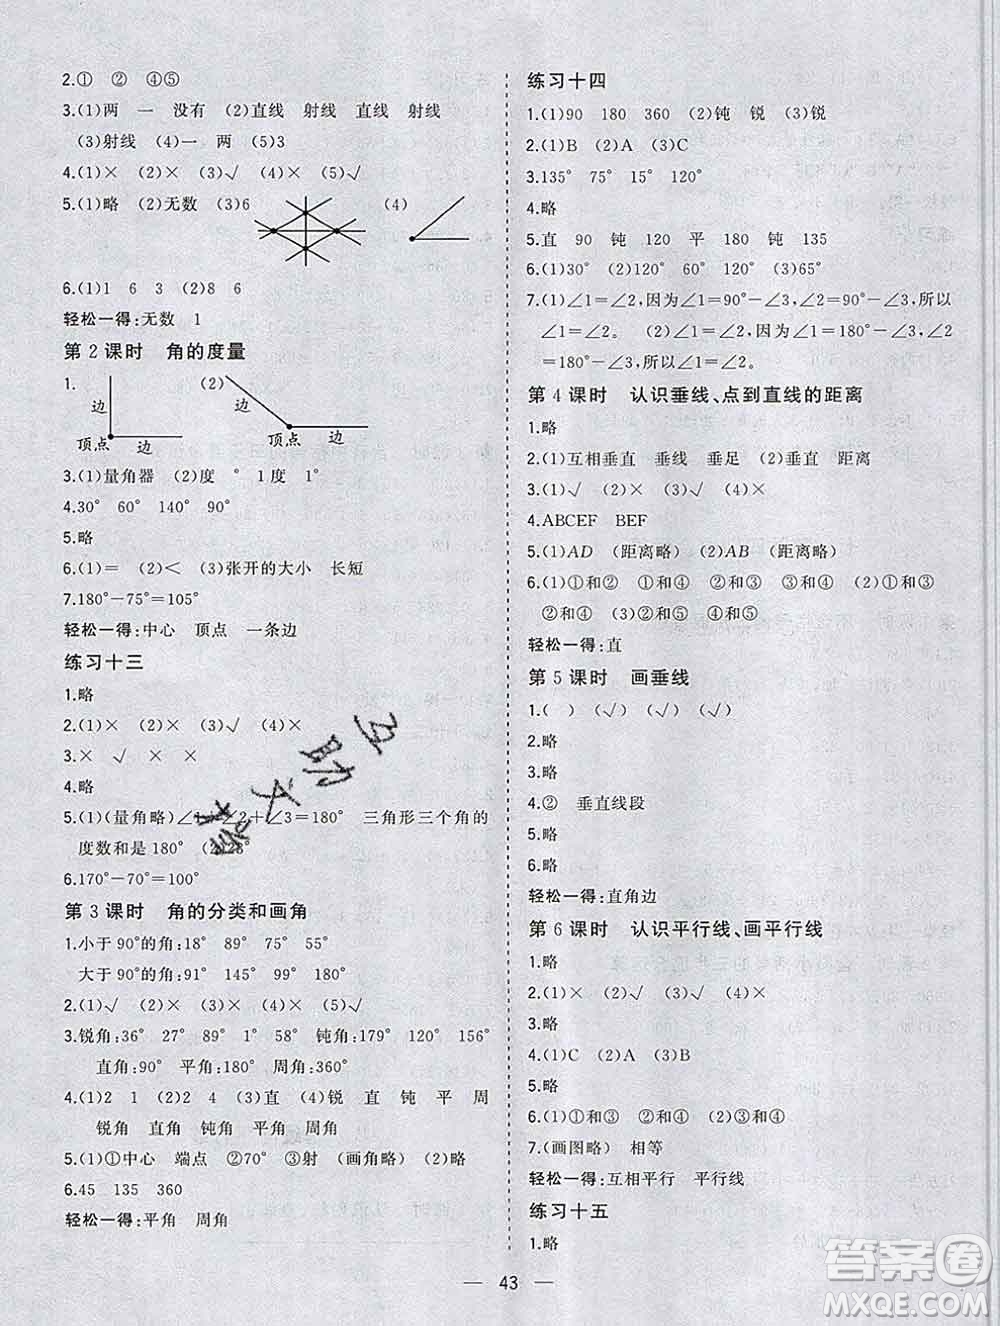 2.① ② ④⑤
3.(1)两 一 没有 (2)直线 射线 直线 射线
(3)射线 (4)一 两 (5)3
4.(1)× (2)× (3)√ (4)× (5)√
5.(1)略 (2)无数 (3)6 (4)
6.(1)1 6 3 (2)8 6
轻松一得:无数 1
第 2 课时 角的度量
1. 边 顶点 边 (2) 边 顶点 边
3.(1)量角器 (2)度 ° 1度 1°
4.30° 60° 140° 90°
5.略
6.(1)= (2)< (3)张开的大小 长短
7.180°-75°=105°
轻松一得:中心 顶点 一条边
练习十三
1.略
2.(1)× (2)× (3)√ (4)×
3.× √ × √
4.略
5.(1)(量角略)∠1+∠2+∠3=180° 三角形三个角的
度数和是180° (2)28°
6.170°-70°=100°
第 3 课时 角的分类和画角
1.小于90°的角:18° 89° 75° 55°
大于90°的角:91° 145° 99° 120°
2.(1)√ (2)× (3)× (4)× (5)√
3.锐角:36° 27° 89° 1° 58° 钝角:179° 120° 156°
直角:90° 平角:180° 周角:360°
4.(1)2 1 (2)2 4 (3)直 (4)锐 直 钝 平 周
锐角 直角 钝角 平角 周角
5.(1)①中心 端点 ②70° ③射 (画角略) (2)略
6.45 135 360
轻松一得:平角 周角
练习十四
1.(1)90 180 360 (2)钝 锐 (3)锐
2.(1)B (2)A (3)C
3.135° 75° 15° 120°
4.略
5.直 90 钝 120 平 180 钝 135
6.(1)30° (2)120° 60° (3)65°
7.(1)∠1=∠2,因为∠1=90°-∠3,∠2=90°-∠3,所以
∠1=∠2。 (2)∠1=∠2,因为∠1=180°-∠3,∠2
=180°-∠3,所以∠1=∠2。
第 4 课时 认识垂线、点到直线的距离
1.略
2.(1)互相垂直 垂线 垂足 (2)垂直 距离
3.(1)√ (2)× (3)√ (4)×
4.ABCEF BEF
5.(1)AD (距离略) (2)AB (距离略)
6.(1)①和② ①和④ ②和③ ③和④ (2)①和③
②和④ (3)②和⑤ ④和⑤
轻松一得:直
第 5 课时 画垂线
1.( ) (√) (√) (√)
2.略
3.略
4.② 垂直线段
5.略
6.略
轻松一得:直角边
第 6 课时 认识平行线、画平行线
1.略
2.(1)× (2)× (3)√ (4)×
3.略
4.(1)C (2)A (3)B
5.略
6.(1)①和③ ②和④ (2)③和④
7.(画图略) 相等
轻松一得:互相平行 平行线
练习十五
1.略
43
互助文档
答案圈
MXQE.COM